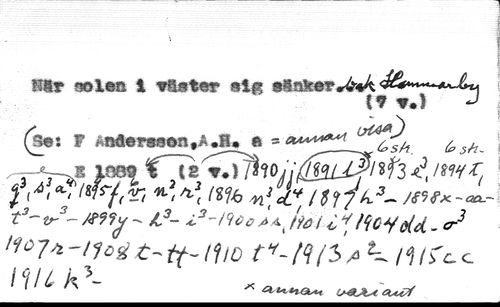 När solen i väster sig sänker. bak Hammarby
(7 v.)
(Se: F Andersson, A.H. a = annan visa)
6 sh. 6 sh.
E 1889 t (2 v.) 1890 jj, 1891 l³ 1893 e³, 1894 t,
q³, s³, a⁴, 1895 f, v, n³, r³, 1896 n³, d⁴, 1897 h³ - 1898 x - aa -
t³ - v³ - 1899 y - h³ - i³ - 1900 ss, 1901 i⁴, 1904 dd - o³
1907 r - 1908 t - tt - 1910 t⁴ - 1913 s² - 1915 cc
1916 k³ -
x annan variant